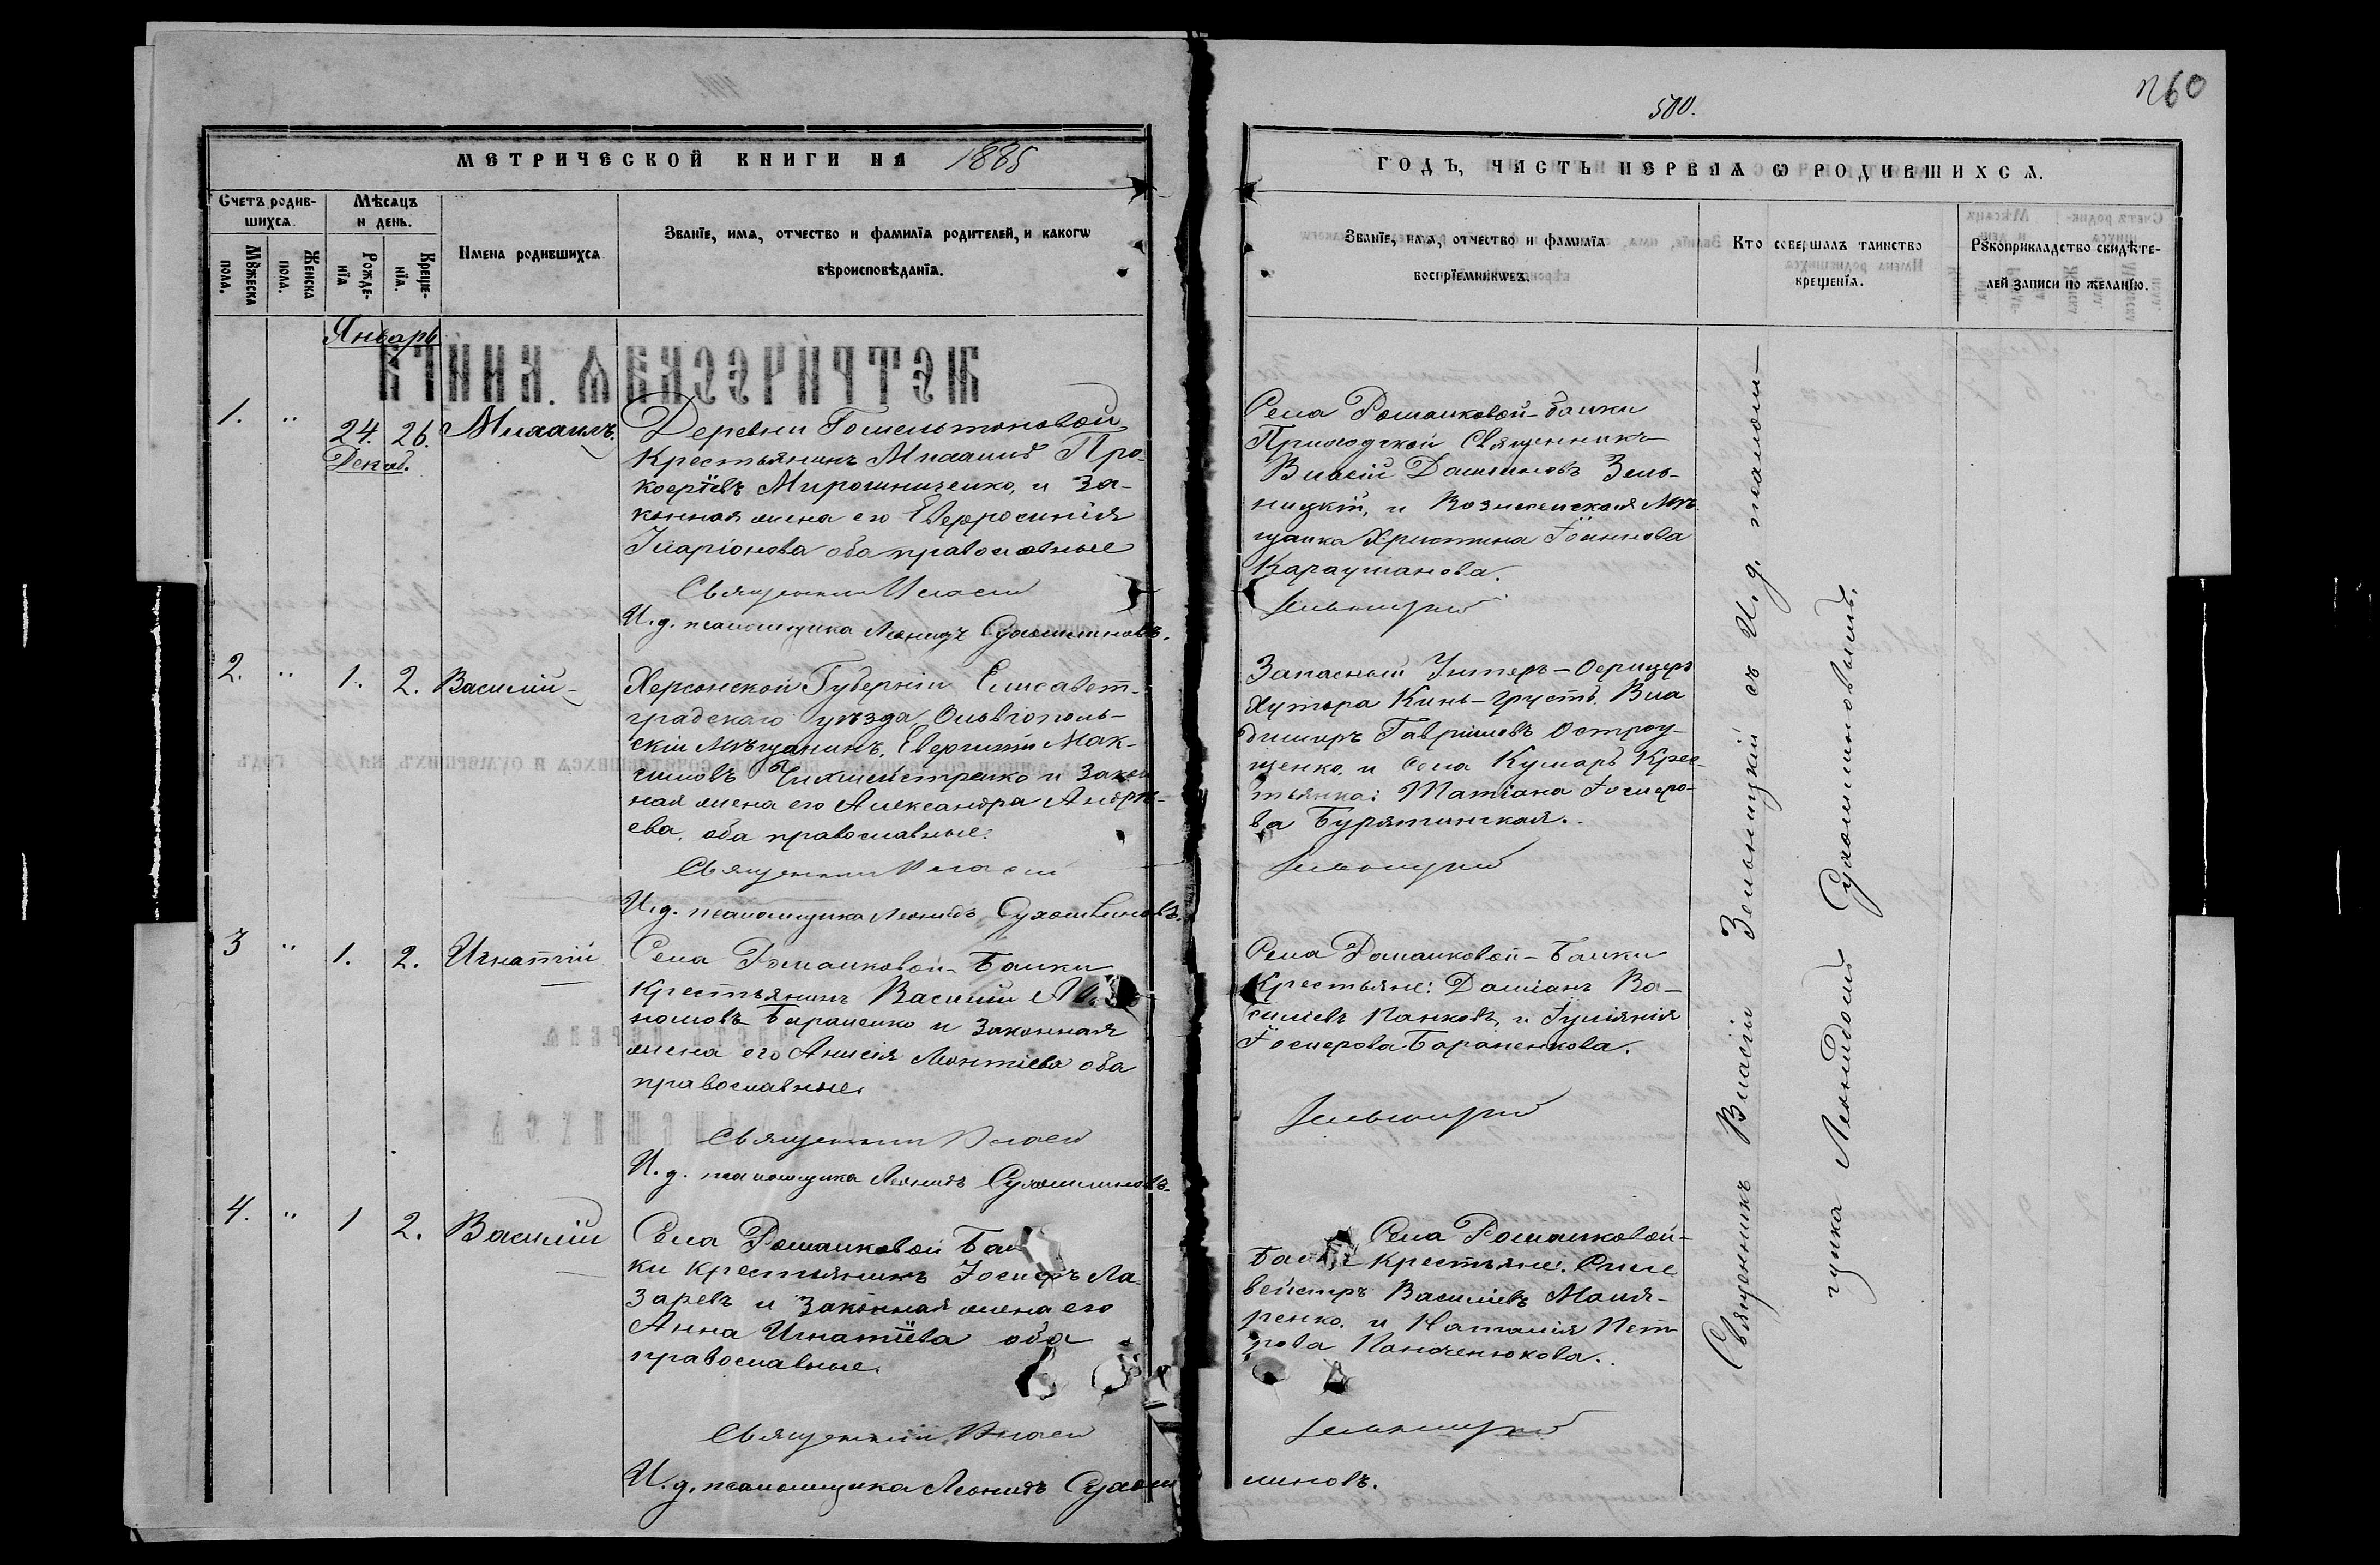 500.
260
МЕТРИЧЕСКОЙ КНИГИ НА 1885
ГОДЪ, ЧАСТЬ ПЕРВАЯ Ѡ РОДИВШИХСѦ.
Счетъ родив-
шихсѧ.
Мꙋжеска
пола.
Женска
пола.
Мѣсѧцъ
и день.
Рожде-
нїѧ
Креще-
нїѧ.
Имена родившихсѧ
Званїе, имѧ, отчество и фамилїѧ родителей, и какогѡ
вѣроисповѣданїѧ.
Званїе, имѧ, отчество и фамилїѧ
воспрїемникѡвъ.
Кто совершалъ таинство
крещенїѧ.
Рꙋкоприкладство свидѣте-
лей записи по желанїю.
Январь
1. " 24. 26. Михаилъ.
Декаб.
Деревни
Крестьянинъ Михаилъ Про-
кофіевъ Мирошниченко, и За-
конная жена его Евфросинія
Иларіонова оба православные
Священникъ Власій
И. д. псаломщика Леонидъ Сухомлиновъ.
Села Романковой-балки
Приходской Священникъ
Власій Зель-
ницкій, и Вознесенская Мѣ-
щанка Христина Іоаннова
Караушанова.
Зельницкій
2. " 1. 2. Василій
Херсонской Губерніи Елисавет-
градскаго уѣзда, Ольвіополь-
скій Мѣщанинъ, Мак-
симовъ и Закон
ная жена его Александра Андрѣ-
ева, оба православные.
Священникъ Власій
И. д. псаломщика Леонидъ Сухомлиновъ.
Запасный Унтеръ-Офицеръ
Хутора Кинь-грусть Вла
димиръ Гавріиловъ Остроу-
щенко, и Села Кумаръ Крес-
тьянка: Татіана Іосифо-
ва Бурятинская.
Зельницкій
3 " 1. 2. Игнатій
Села Романковой-Балки
Крестьянинъ Василій
новъ Бараненко и Законная
жена его Анисія Леонтіева оба
православные.
Священникъ Власій
И. д. псаломщика Леонидъ Сухомлиновъ.
Села Романковой-Балки
Крестьяне: Даміанъ Ва-
силіевъ Панковъ, и Іуліанія
Іосифова Бараненкова.
Зельницкій
4. " 1 2. Василій
Села Романковой Бал
ки крестьянинъ Іосифъ Ла-
заревъ и Законная жена его
Анна Игнатіева оба
православные.
Священникъ Власій
И. д. псаломщика Леонидъ Сухом
Села Романковой-
Балки Крестьяне: Силь
вейстръ Василіевъ Маля-
ренко, и Наталія Пет
рова
Зельницкій
линовъ.
Священникъ Власій Зельницкій съ И. д. псалом-
щика Леонидомъ Сухомлиновымъ.